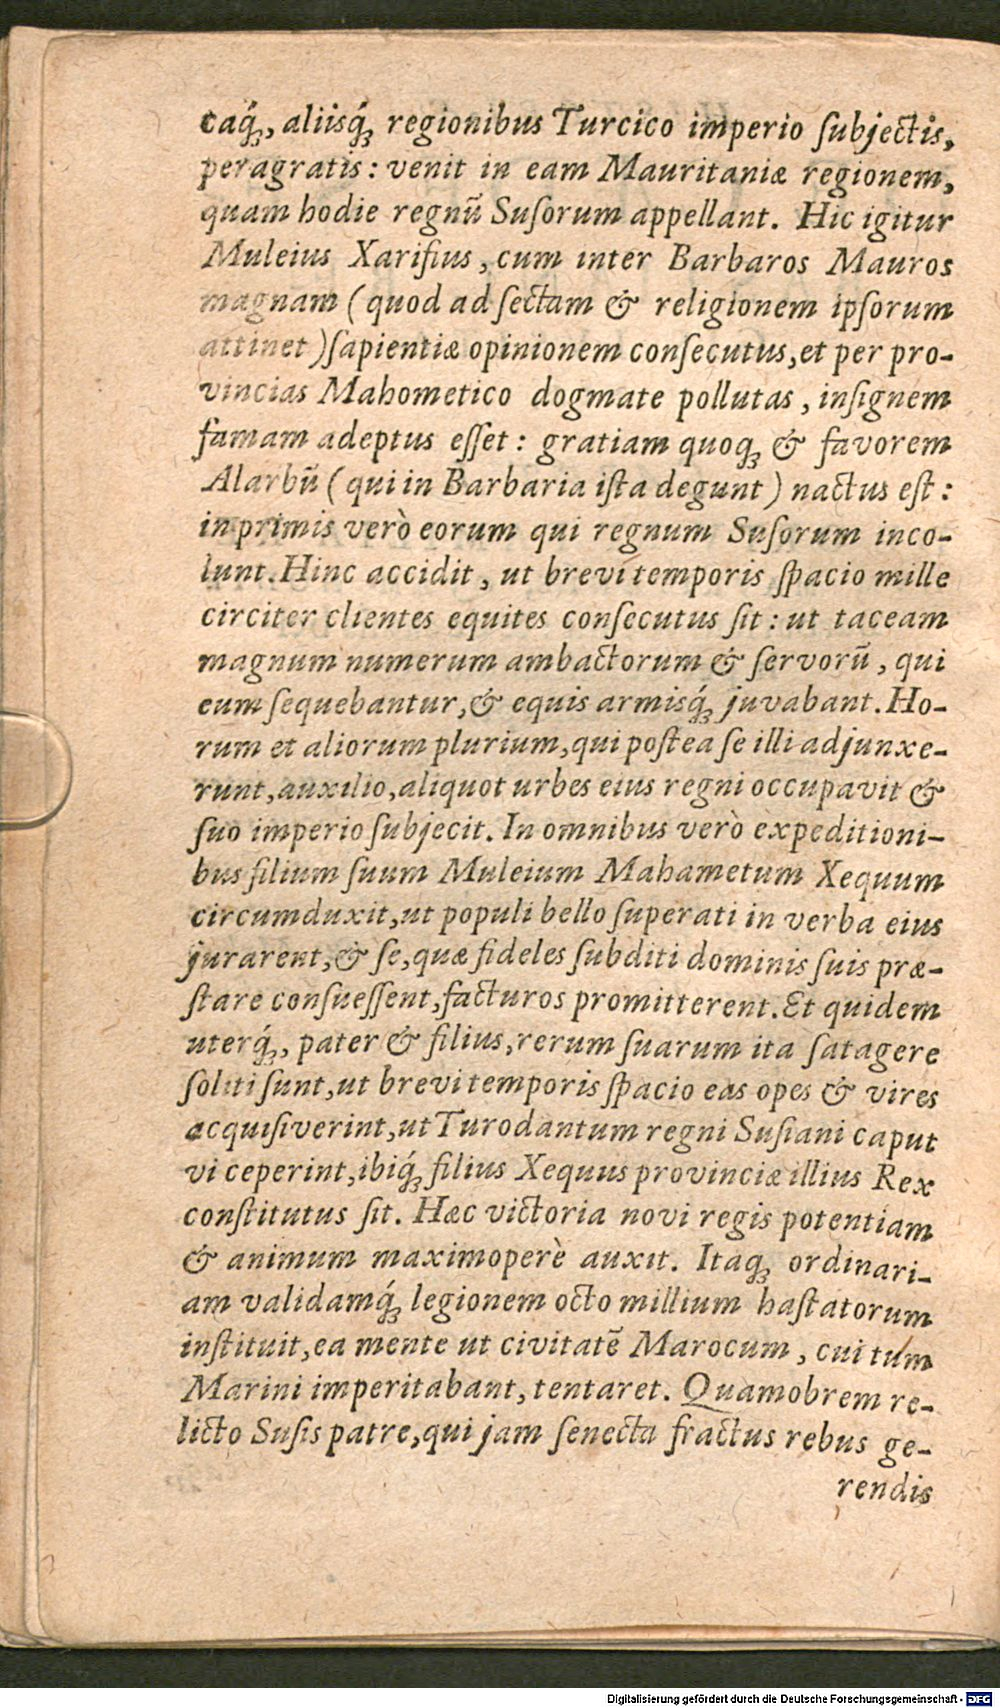 taq́;, aliisq́; regionibus Turcico imperio ſubjectis,
peragratis: venit in eam Mauritaniæ regionem,
quam hodie regnũ Suſorum appellant. Hic igitur
Muleius Xarifius, cum inter Barbaros Mauros
magnam (quod ad ſectam & religionem ipſorum
attinet) ſapientiæ opinionem conſecutus, et per pro-
vincias Mahometico dogmate pollutas, inſignem
famam adeptus eſſet: gratiam quoq; & favorem
Alarbũ (qui in Barbaria iſta degunt) nactus eſt:
in primis verò eorum qui regnum Suſorum inco-
lunt. Hinc accidit, ut brevi temporis ſpacio mille
circiter clientes equites conſecutus ſit: ut taceam
magnum numerum ambactorum & ſervorũ, qui
eum ſequebantur, & equis armisq́; juvabant. Ho-
rum et aliorum plurium, qui poſtea ſe illi adjunxe-
runt, auxilio, aliquot urbes eius regni occupavit &
ſuo imperio ſubjecit. In omnibus verò expeditioni-
bus filium ſuum Muleium Mahametum Xequum
circumduxit, ut populi bello ſuperati in verba eius
jurarent, & ſe, quæ fideles ſubditi dominis ſuis præ-
ſtare conſueſſent, facturos promitterent. Et quidem
uterq́;, pater & filius, rerum ſuarum ita ſatagere
ſoliti ſunt, ut brevi temporis ſpacio eas opes & vires
acquiſiverint, ut Turodantum regni Suſiani caput
vi ceperint, ibiq́; filius Xequus provinciæ illius Rex
conſtitutus ſit. Hæc victoria novi regis potentiam
& animum maximoperè auxit. Itaq; ordinari-
am validamq́; legionem octo millium haſtatorum
inſtituit, ea mente ut civitatẽ Marocum, cui tum
Marini imperitabant, tentaret. Quamobrem re-
licto Suſis patre, qui jam ſenecta fractus rebus ge-
rendis
Digitalisierung gefördert durch die Deutsche Forschungsgemeinschaft - DFG